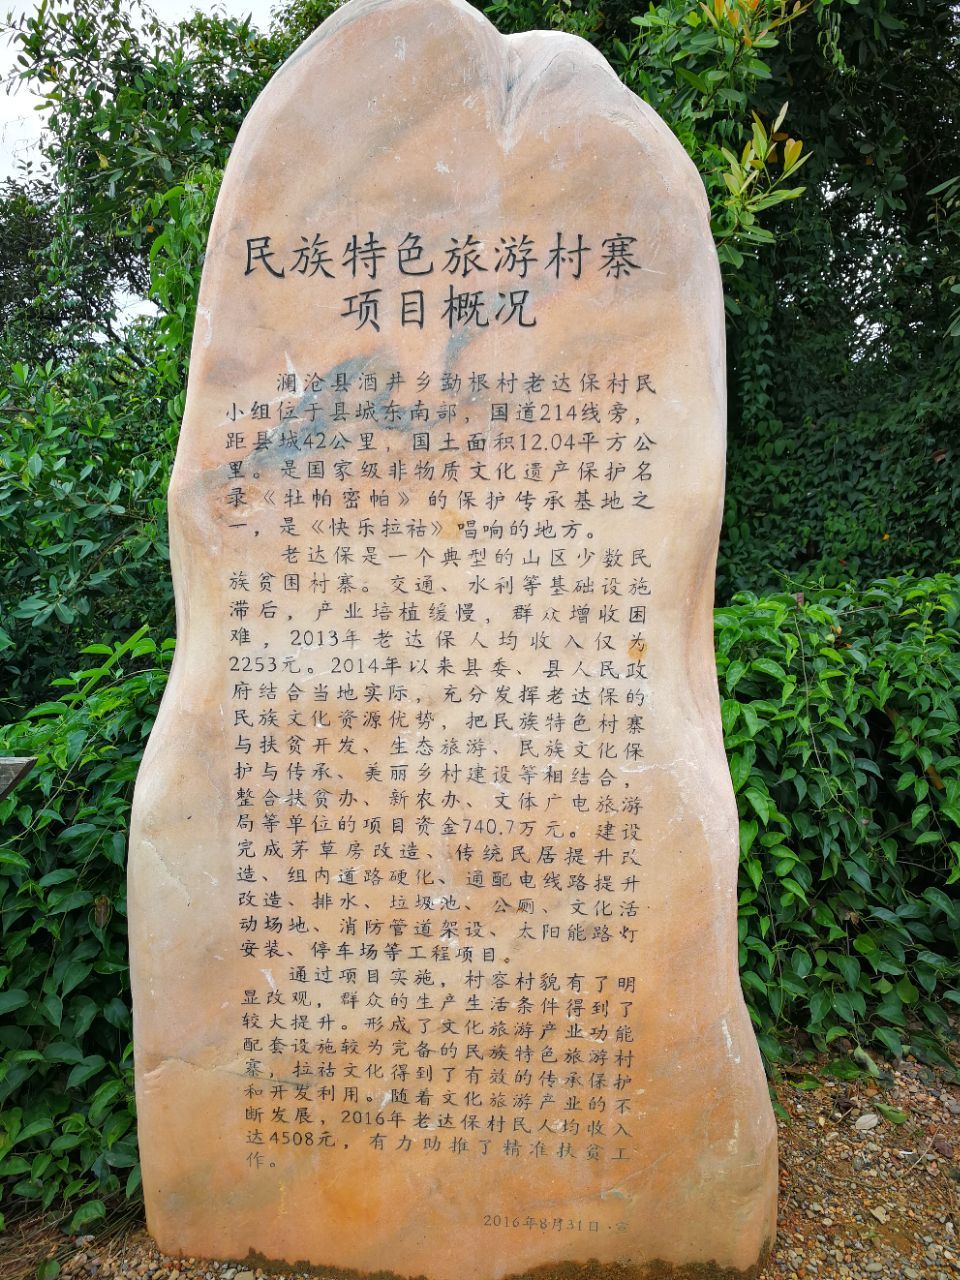 民族特色旅游村寨
项目概况
澜沧县酒井乡勐根村老达保村民
小组位于县城东南部，国道214线旁，
距县城42公里，国土面积12.04平方公
里。是国家级非物质文化遗产保护名
录《牡帕密帕》的保护传承基地之
一，是《快乐拉祜》唱响的地方。
老达保是一个典型的山区少数民
族贫困村寨。交通、水利等基础设施
滞后，产业培植缓慢，群众增收困
难，2013年老达保人均收入仅为
2253元。2014年以来县委、县人民政
府结合当地实际，充分发挥老达保的
民族文化资源优势，把民族特色村寨
与扶贫开发、生态旅游、民族文化保
护与传承、美丽乡村建设等相结合，
整合扶贫办、新农办、文体广电旅游
局等单位的项目资金740.7万元。建设
完成茅草房改造、传统民居提升改
造、组内道路硬化、通配电线路提升
改造、排水、垃圾池、公厕、文化活
动场地、消防管道架设、太阳能路灯
安装、停车场等工程项目。
通过项目实施，村容村貌有了明
显改观，群众的生产生活条件得到了
较大提升。形成了文化旅游产业功能
配套设施较为完备的民族特色旅游村
寨，拉祜文化得到了有效的传承保护
和开发利用。随着文化旅游产业的不
断发展，2016年老达保村民人均收入
达4508元，有力助推了精准扶贫工
作。
2016年8月31日·